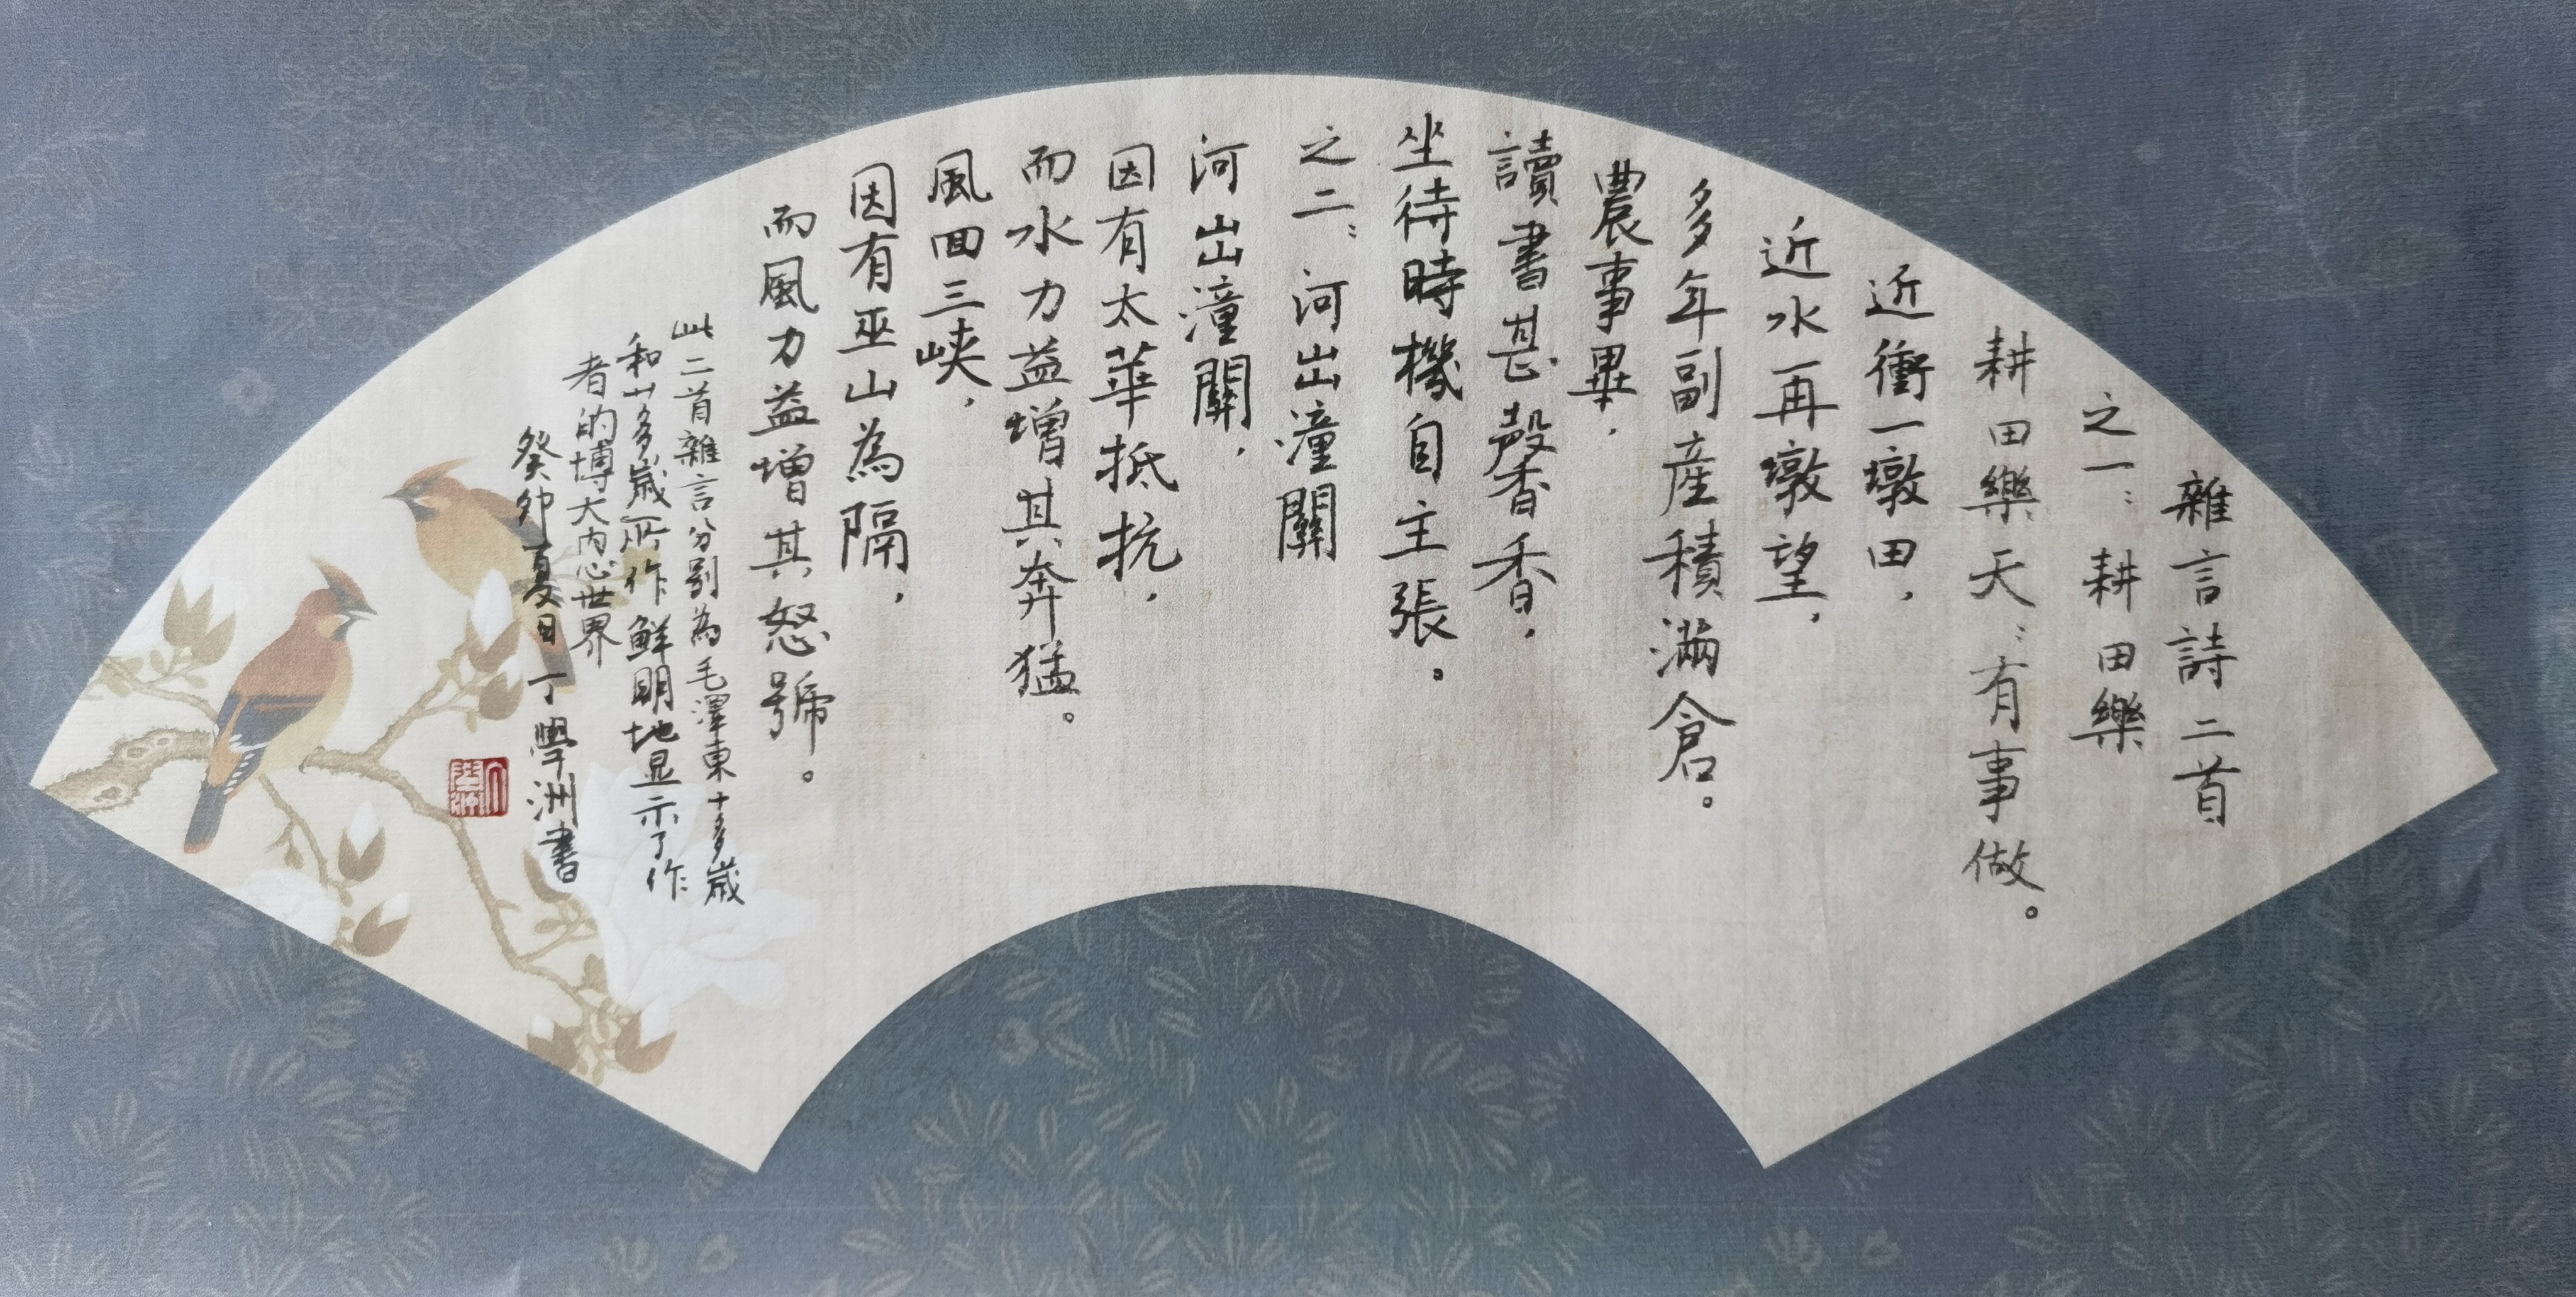 雜言詩二首
之一：耕田樂
耕田樂天：有事做。
近衝一墩田，
近水再墩望，
多年副産積滿倉。
農事畢，
讀書甚馨香，
坐待時機自主張。
之二：河出潼關
河出潼關，
因有太華抵抗，
而水力益增其奔猛。
風回三峽，
因有巫山為隔，
而風力益增其怒號。
此二首雜言分别為毛澤東十多歲
和廿多歲所作鮮明地显示了作
者的博大内心世界
癸卯夏日 丁學洲書